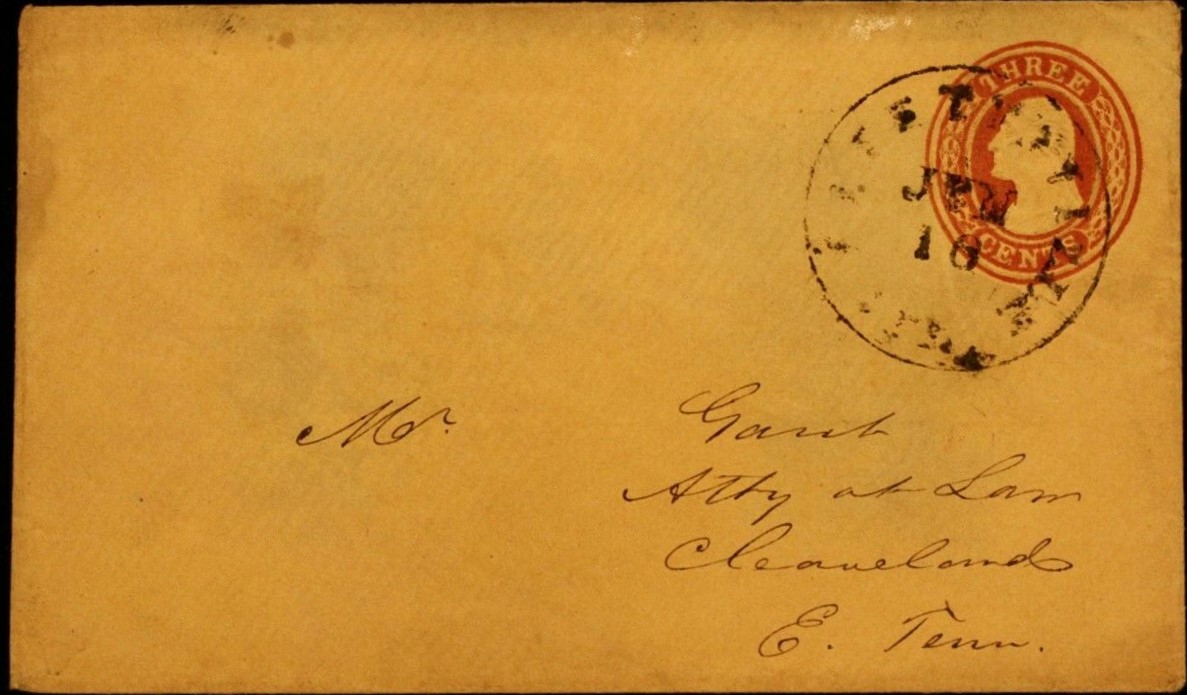 THREE
CENTS
16
Mr. Gaut
Atty at Law
Cleaveland
E. Tenn.